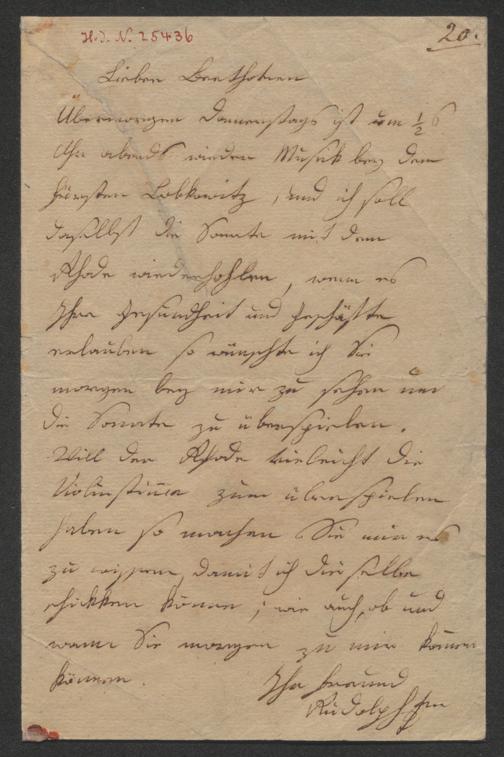 H. I. N. 25436
20.
Lieber Beethoven
Übermorgen Donnerstags ist um ½ 6
Uhr abends wieder Musik bey dem
Fürsten Lobkowitz, und ich soll
daselbst die Sonate mit dem
Rhode wiederhohlen, wenn es
Ihre Gesundheit und Geschäfte
erlauben so wünschte ich Sie
morgen bey mir zu sehen um
die Sonate zu überspielen.
Will der Rhode vieleicht die
Violinstimme zum überspielen
haben so machen Sie mir es
zu wissen, damit ich dieselbe
schikken könne; wie auch, ob und
wann Sie morgen zu mir kommen
können.
Ihr Freund
Rudolph